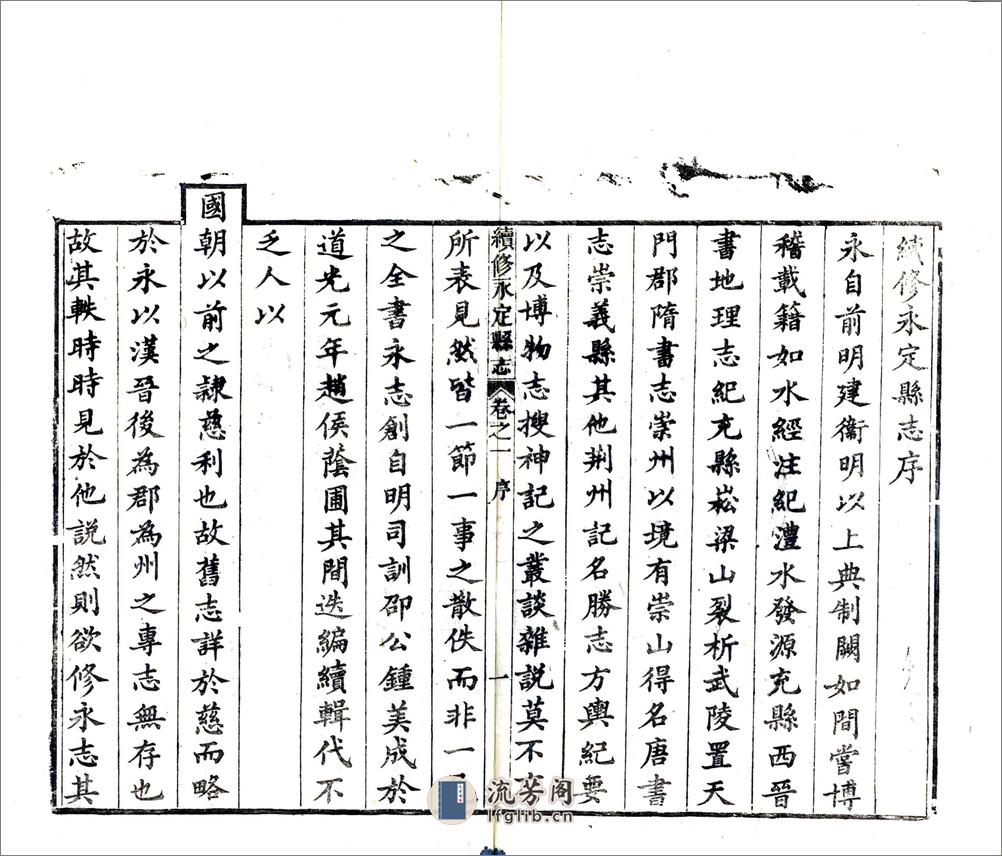 續修永定縣志序
永自前明建衞明以上典制闕如間嘗博
稽載籍如水經注紀澧水發源充縣西晉
書地理志紀充縣崧梁山裂析武陵置天
門郡隋書志崇州以境有崇山得名唐書
志崇義縣其他荆州記名勝志方輿紀要
以及博物志搜神記之叢談雜説莫不
續修永定縣志 卷之一 序 一
所表見然皆一節一事之散佚而非一
之全書永志創自明司訓邵公鍾美成於
道光元年趙侯蔭圃其間迭編續輯代不
乏人以
國朝以前之隷慈利也故舊志詳於慈而略
於永以漢晉後為郡為州之專志無存也
故其軼時時見於他説然則欲修永志其
流芳阁
lfglib.cn